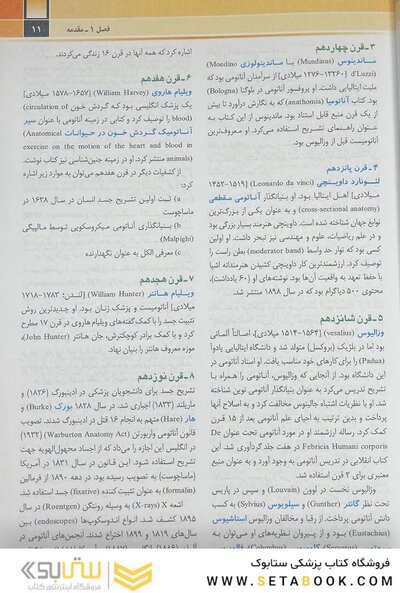 فصل ۱ ـ مقدمه
۱۱
۳ـ قرن چهاردهم
ماندینوس (Mundinus) یا ماندینولوزی (Mondino
d'Luzzi) [۱۳۲۶ـ۱۲۷۶ میلادی] از سرآمدان آناتومی بود که
ملیت ایتالیایی داشت. او پروفسور آناتومی در بولوگنا (Bologna)
بود. کتاب آناتومیا (anathomia) که به نگارش درآورد تا بیش
از یک قرن منبع قابل استناد بود. ماندینوس از این کتاب به
عنوان راهنمای تشریح استفاده می‌کرد. او معروف‌ترین
آناتومیست قبل از وزالیوس بود.
۴ـ قرن پانزدهم
لئونارد داوینچی (Leonardo da vinci) [۱۵۱۹ـ۱۴۵۲
میلادی] اهل ایتالیا بود. او بنیانگذار آناتومی مقطعی
(cross-sectional anatomy) و به عنوان یکی از بزرگ‌ترین
نوابغ جهان شناخته شده است. داوینچی هنرمند بسیار بزرگی بود
و در علم ریاضیات، علوم و مهندسی نیز تبحر داشت. او اولین
کسی بود که نوار حد واسط (moderator band) بطن راست را
توصیف کرد. ارزشمندترین کار داوینچی کشیدن هنرمندانه اشیا
با حفظ تعهد به واقعیت آن‌ها بود. نوشته‌های او (۶۰ یادداشت)،
محتوی ۵۰۰ دیاگرام بود که در سال ۱۸۹۸ منتشر شد.
۵ـ قرن شانزدهم
وزالیوس (vesalius) [۱۵۶۴ـ۱۵۱۴ میلادی]، اصالتاً آلمانی
بود اما در بلژیک (بروکسل) متولد شد و دانشگاه ایتالیایی پادوآ
(Padua) را برای کارهای خود مناسب یافت. او استاد آناتومی در
این دانشگاه بود. از آنجایی که وزالیوس، آناتومی را همراه با
تشریح تدریس می‌کرد به عنوان بنیانگذار آناتومی نوین شناخته
شد. او با نظریات اشتباه جالینوس مخالفت کرد و به اصلاح آنها
پرداخت و بدین ترتیب به احیای علم آناتومی بعد از ۱۵ قرن
کمک کرد. رساله ارزشمند او در مورد آناتومی تحت عنوان De
Febricia Humani corporis در هفت جلد گردآوری شد. این
کتاب انقلابی در تدریس آناتومی به وجود آورد و به عنوان منبع
معتبری برای ۲ قرن استفاده شد.
وزالیوس نخست در لوون (Louvain) و سپس در پاریس
تحت نظر گانتر (Gunther) و سیلویوس (Sylvius) به کسب
دانش آناتومی پرداخت. از رقبا و مخالفان وزالیوس استاشیوس
(Eustachius) بود و از پیروان نظریه‌های او می‌توان به
اشاره کرد که همه آنها در قرن ۱۶ زندگی می‌کردند.
۶ـ قرن هفدهم
ویلیام هاروی (William Harvey) [۱۶۵۷ـ۱۵۷۸ میلادی]
یک پزشک انگلیسی بود که گردش خون (circulation of
blood) را توصیف کرد و کتابی در زمینه آناتومی با عنوان سیر
آناتومیک گردش خون در حیوانات (Anatomical
exercise on the motion of the heart and blood in
animals) منتشر کرد. او در زمینه جنین‌شناسی نیز کتاب نوشت.
از کشفیات دیگر در قرن هفدهم می‌توان به موارد زیر اشاره
کرد:
a) ثبت اولین تشریح جسد انسان در سال ۱۶۳۸ در
ماساچوست
b) بنیانگذاری آناتومی میکروسکوپی توسط مالپیگی
(Malpighi)
c) معرفی الکل به عنوان نگهدارنده
۷ـ قرن هجدهم
ویلیام هانتر (William Hunter) [لندن: ۱۷۸۳ـ۱۷۱۸
میلادی] آناتومیست و پزشک زنان بود. او جدیدترین روش
تثبیت جسد را با کمک گفته‌های ویلیام هاروی در قرن ۱۷ مطرح
کرد و با کمک برادر کوچکترش، جان هانتر (John Hunter)،
موزه معروف هانتر را بنیان نهاد.
۸ـ قرن نوزدهم
تشریح جسد برای دانشجویان پزشکی در ادینبورگ (۱۸۲۶) و
ماریلند (۱۸۳۳) اجباری شد. در سال ۱۸۲۸ بورک (Burke) و
هار (Hare) متهم به انجام ۱۶ قتل در ادینبورگ شدند. تصویب
قانون آناتومی واربورتن (Warburton Anatomy Act) (۱۹۳۲)
در انگلیس این اجازه را می‌داد که از اجساد مجهول‌الهویه جهت
تشریح استفاده شود. این قانون در سال ۱۸۳۱ در آمریکا
(ماساچوست) به تصویب رسیده بود. در دهه ۱۸۹۰ از فرمالین
(formalin) به عنوان تثبیت کننده (fixative) جسد استفاده شد.
اشعه X (X-rays) به وسیله رونتگن (Roentgen) در سال
۱۸۹۵ کشف شد. انواع اندوسکوپ‌ها (endoscopes) بین
سال‌های ۱۸۱۹ و ۱۸۹۹ اختراع شدند. انجمن‌های آناتومی در
فروشگاه کتاب پزشکی ستابوک
WWW.SETABOOK.COM
ستابوک
فروشگاه اینترنتی کتاب